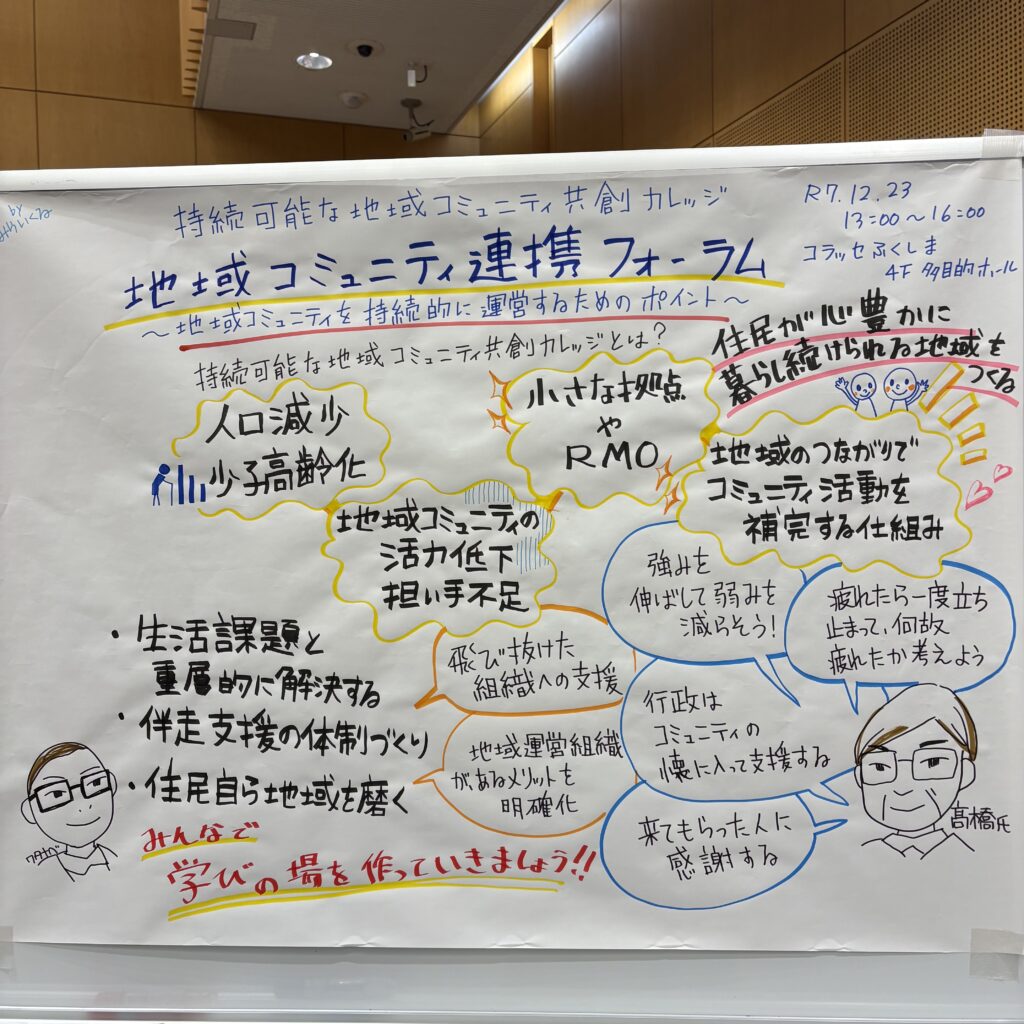 by
みらいくる
持続可能な地域コミュニティ共創カレッジ
R7.12.23
13:00～16:00
コラッセふくしま
4F 多目的ホール
地域コミュニティ連携フォーラム
～地域コミュニティを持続的に運営するためのポイント～
持続可能な地域コミュニティ共創カレッジとは？
住民が心豊かに
暮らし続けられる地域を
つくる
人口減少
少子高齢化
地域コミュニティの
活力低下
担い手不足
小さな拠点
や
RMO
地域のつながりで
コミュニティ活動を
補完する仕組み
・生活課題と
重層的に解決する
・伴走支援の体制づくり
・住民自ら地域を磨く
みんなで
学びの場を作っていきましょう!!
ワタナベ
飛び抜けた
組織への支援
地域運営組織
があるメリットを
明確化
強みを
伸ばして弱みを
減らそう!
疲れたら一度立ち
止まって、何故
疲れたか考えよう
行政は
コミュニティの
懐に入って支援する
来てもらった人に
感謝する
髙橋氏